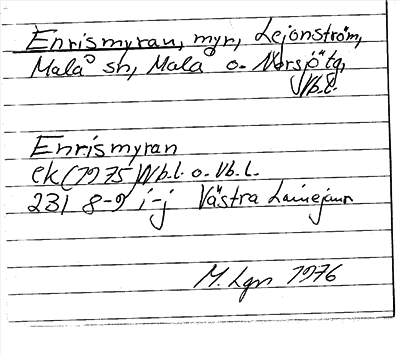 Enrismyran, myr, Lejonström,
Malå sn, Malå o. Norsjö tg,
Vb.l.
Enrismyran
ek (1975) Nb.l. o. Vb.l.
231 8-9 i-j Västra Lainejaur
M. Lgn 1976